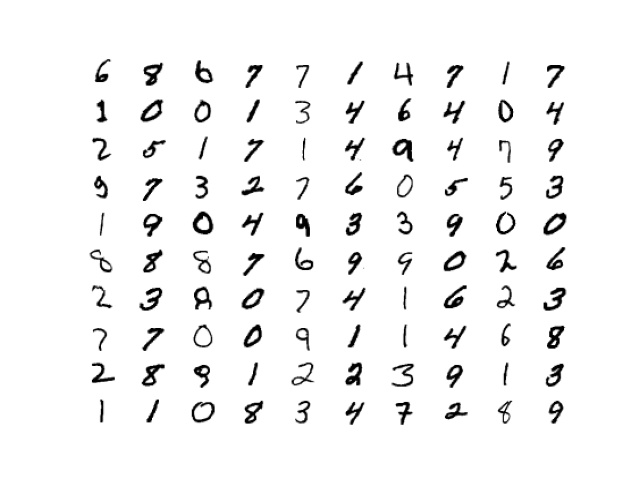 6 8 6 7 7 1 4 7 1 7
1 0 0 1 3 4 6 4 0 4
2 5 1 7 1 4 9 4 7 9
9 7 3 2 7 6 0 5 5 3
1 9 0 4 9 3 3 9 0 0
8 8 8 7 6 9 9 0 2 6
2 3 8 0 7 4 1 6 2 3
7 7 0 0 9 1 1 4 6 8
2 8 9 1 2 2 3 9 1 3
1 1 0 8 3 4 7 2 8 9